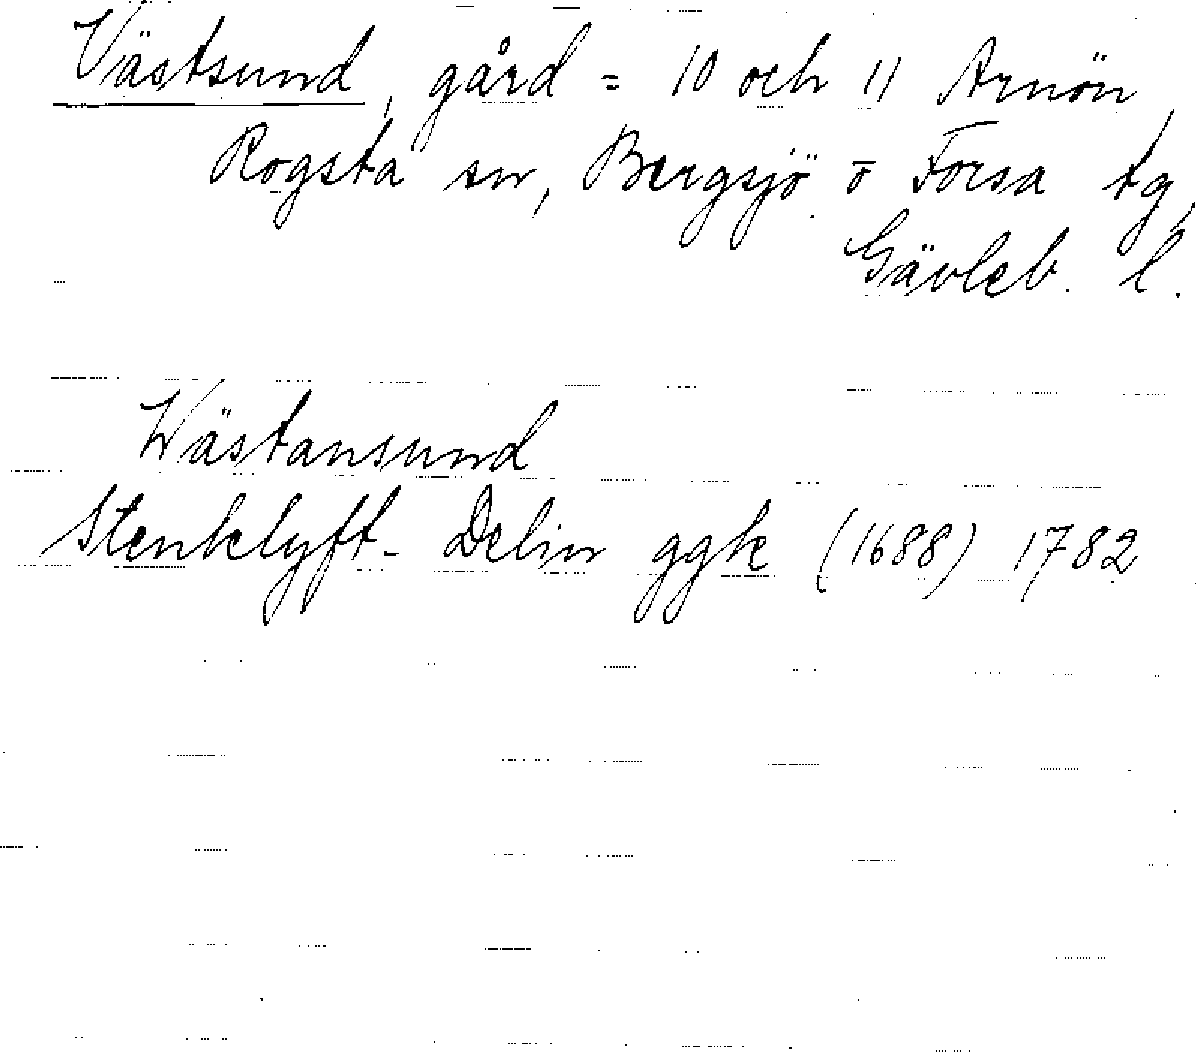 Västsund, gård = 10 och 11 Arnön,
Rogsta sn, Bergsjö o Forsa tg,
Gävleb. l.
Wästansund
Stenklyft- Delin ggk (1688) 1782